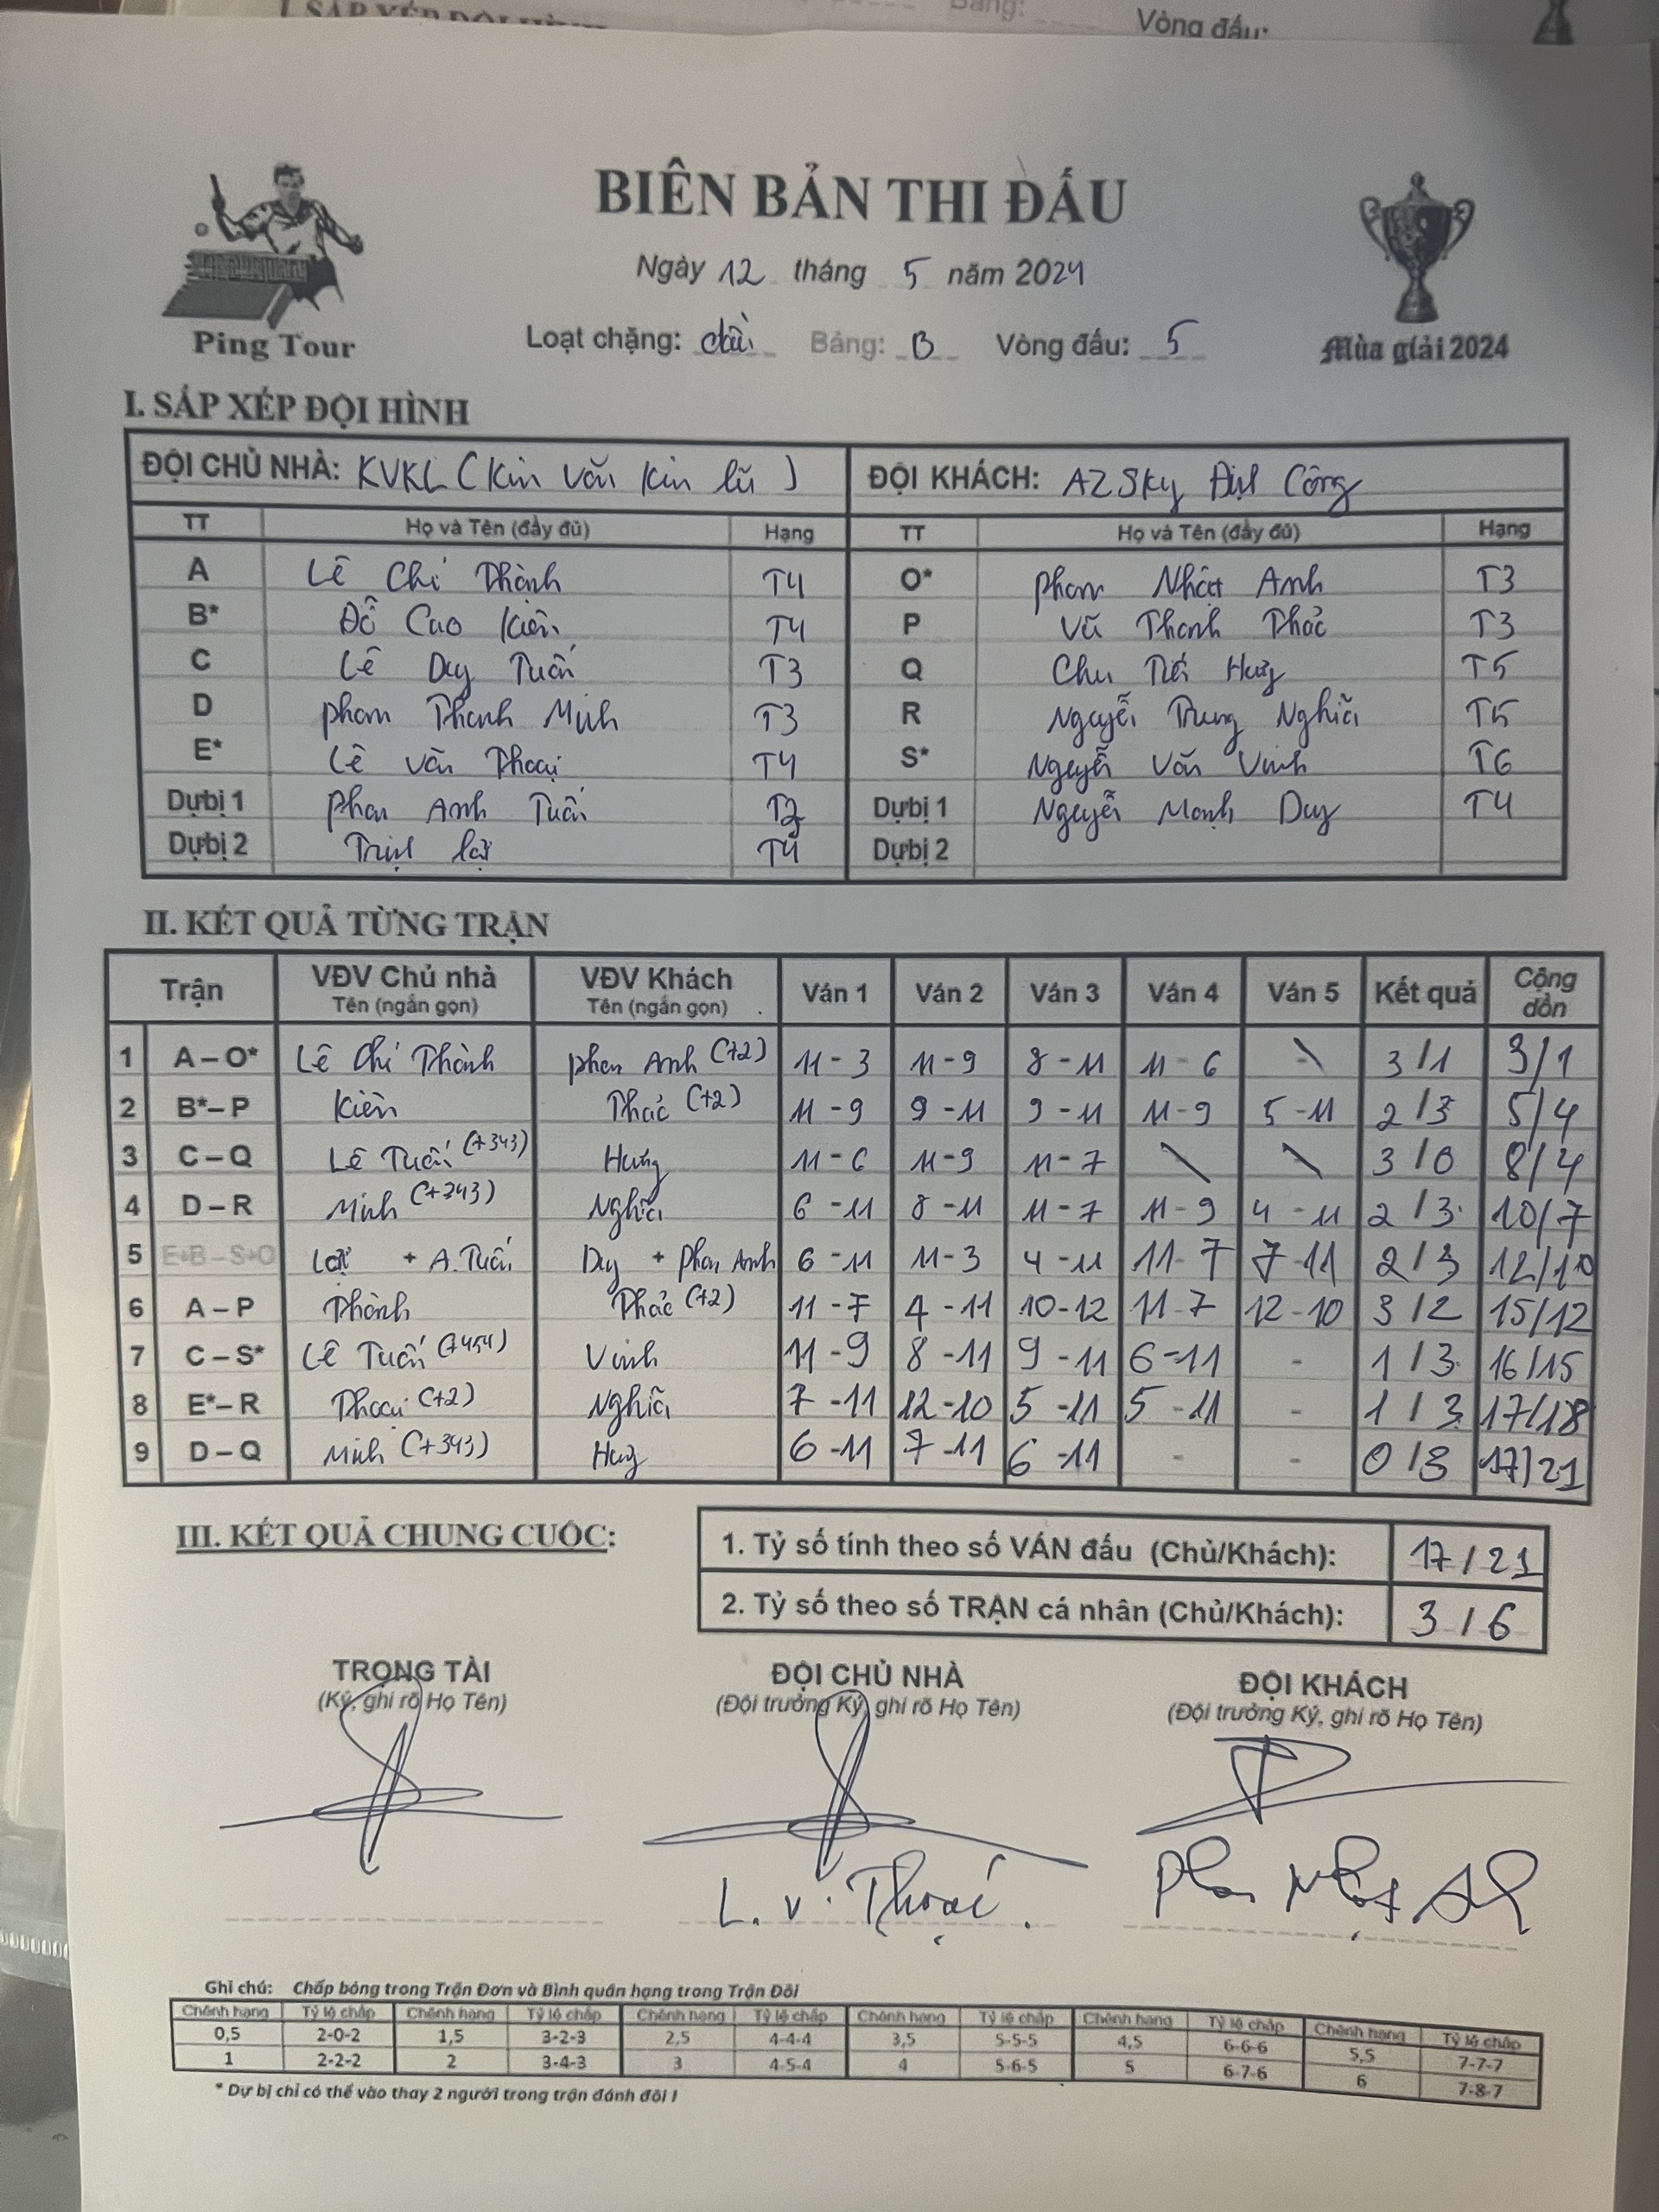 I. SẮP XẾP ĐỘI HÌNH
Bảng:
Vòng đấu:
BIÊN BẢN THI ĐẤU
Ngày 12 tháng 5 năm 2024
Ping Tour
Loạt chặng: dài Bảng: B Vòng đấu: 5
Mùa giải 2024
I. SẮP XẾP ĐỘI HÌNH
ĐỘI CHỦ NHÀ: KVKL (Kim Văn Kim lũ) ĐỘI KHÁCH: AZSky Định Công
TT Họ và Tên (đầy đủ) Hạng TT Họ và Tên (đầy đủ) Hạng
A Lê Chí Thành T4 O* Phan Nhật Anh T3
B* Đỗ Cao Kiên T4 P Vũ Thanh Thác T3
C Lê Duy Tuấn T3 Q Chu Tiến Hưng T5
D Phạm Thanh Minh T3 R Nguyễn Trung Nghĩa T5
E* Lê Văn Thoại T4 S* Nguyễn Văn Vinh T6
Dự bị 1 Phan Anh Tuấn Dự bị 1 Nguyễn Mạnh Duy T4
Dự bị 2 Trịnh Lợi T4 Dự bị 2
II. KẾT QUẢ TỪNG TRẬN
Trận VĐV Chủ nhà VĐV Khách Ván 1 Ván 2 Ván 3 Ván 4 Ván 5 Kết quả Cộng dồn
Tên (ngắn gọn) Tên (ngắn gọn)
1 A – O* Lê Chí Thành Phan Anh (+2) 11 - 3 11 - 9 8 - 11 11 - 6 - 3 / 1 3/1
2 B*– P Kiên Thác (+2) 11 - 9 9 - 11 9 - 11 11 - 9 5 - 11 2 / 3 5/4
3 C – Q Lê Tuấn (+343) Hưng 11 - 6 11 - 9 11 - 7 3 / 0 8/4
4 D – R Minh (+343) Nghĩa 6 - 11 8 - 11 11 - 7 11 - 9 4 - 11 2 / 3 10/7
5 E+B – S+O Lợi + A.Tuấn Duy + Phan Anh 6 - 11 11 - 3 4 - 11 11 - 7 7 - 11 2 / 3 12/10
6 A – P Thành Thác (+2) 11 - 7 4 - 11 10 - 12 11 - 7 12 - 10 3 / 2 15/12
7 C – S* Lê Tuấn (+454) Vinh 11 - 9 8 - 11 9 - 11 6 - 11 - 1 / 3 16/15
8 E*– R Thoại (+2) Nghĩa 7 - 11 12 - 10 5 - 11 5 - 11 - 1 / 3 17/18
9 D – Q Minh (+343) Hưng 6 - 11 7 - 11 6 - 11 - - 0 / 3 17/21
III. KẾT QUẢ CHUNG CUỘC:
1. Tỷ số tính theo số VÁN đấu (Chủ/Khách): 17 / 21
2. Tỷ số theo số TRẬN cá nhân (Chủ/Khách): 3 / 6
TRỌNG TÀI ĐỘI CHỦ NHÀ ĐỘI KHÁCH
(Ký, ghi rõ Họ Tên) (Đội trưởng Ký, ghi rõ Họ Tên) (Đội trưởng Ký, ghi rõ Họ Tên)
L. v. Thoại Phan Nhật Anh
Ghi chú: Chấp bóng trong Trận Đơn và Bình quân hạng trong Trận Đôi
Chênh hạng Tỷ lệ chấp Chênh hạng Tỷ lệ chấp Chênh hạng Tỷ lệ chấp Chênh hạng Tỷ lệ chấp Chênh hạng Tỷ lệ chấp Chênh hạng Tỷ lệ chấp
0,5 2-0-2 1,5 3-2-3 2,5 4-4-4 3,5 5-5-5 4,5 6-6-6 5,5 7-7-7
1 2-2-2 2 3-4-3 3 4-5-4 4 5-6-5 5 6-7-6 6 7-8-7
* Dự bị chỉ có thể vào thay 2 người trong trận đánh đôi !